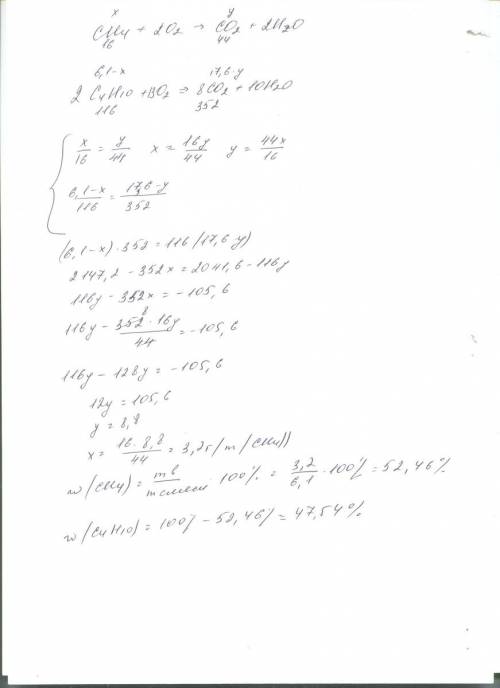 x y
CH4 + 2O2 → CO2 + 2H2O
16 44
6,1-x 17,6-y
2 C4H10 + 13O2 → 8CO2 + 10H2O
116 352
x/16 = y/44 x = 16y/44 y = 44x/16
6,1-x/116 = 17,6-y/352
(6,1-x)·352 = 116(17,6-y)
2147,2 - 352x = 2041,6 - 116y
116y - 352x = -105,6
116y - 352·16y/44 = -105,6
8
116y - 128y = -105,6
12y = 105,6
y = 8,8
x = 16·8,8/44 = 3,2г (m(CH4))
w(CH4) = mв/mсмеси · 100% = 3,2/6,1 · 100% = 52,46%
w(C4H10) = 100% - 52,46% = 47,54%